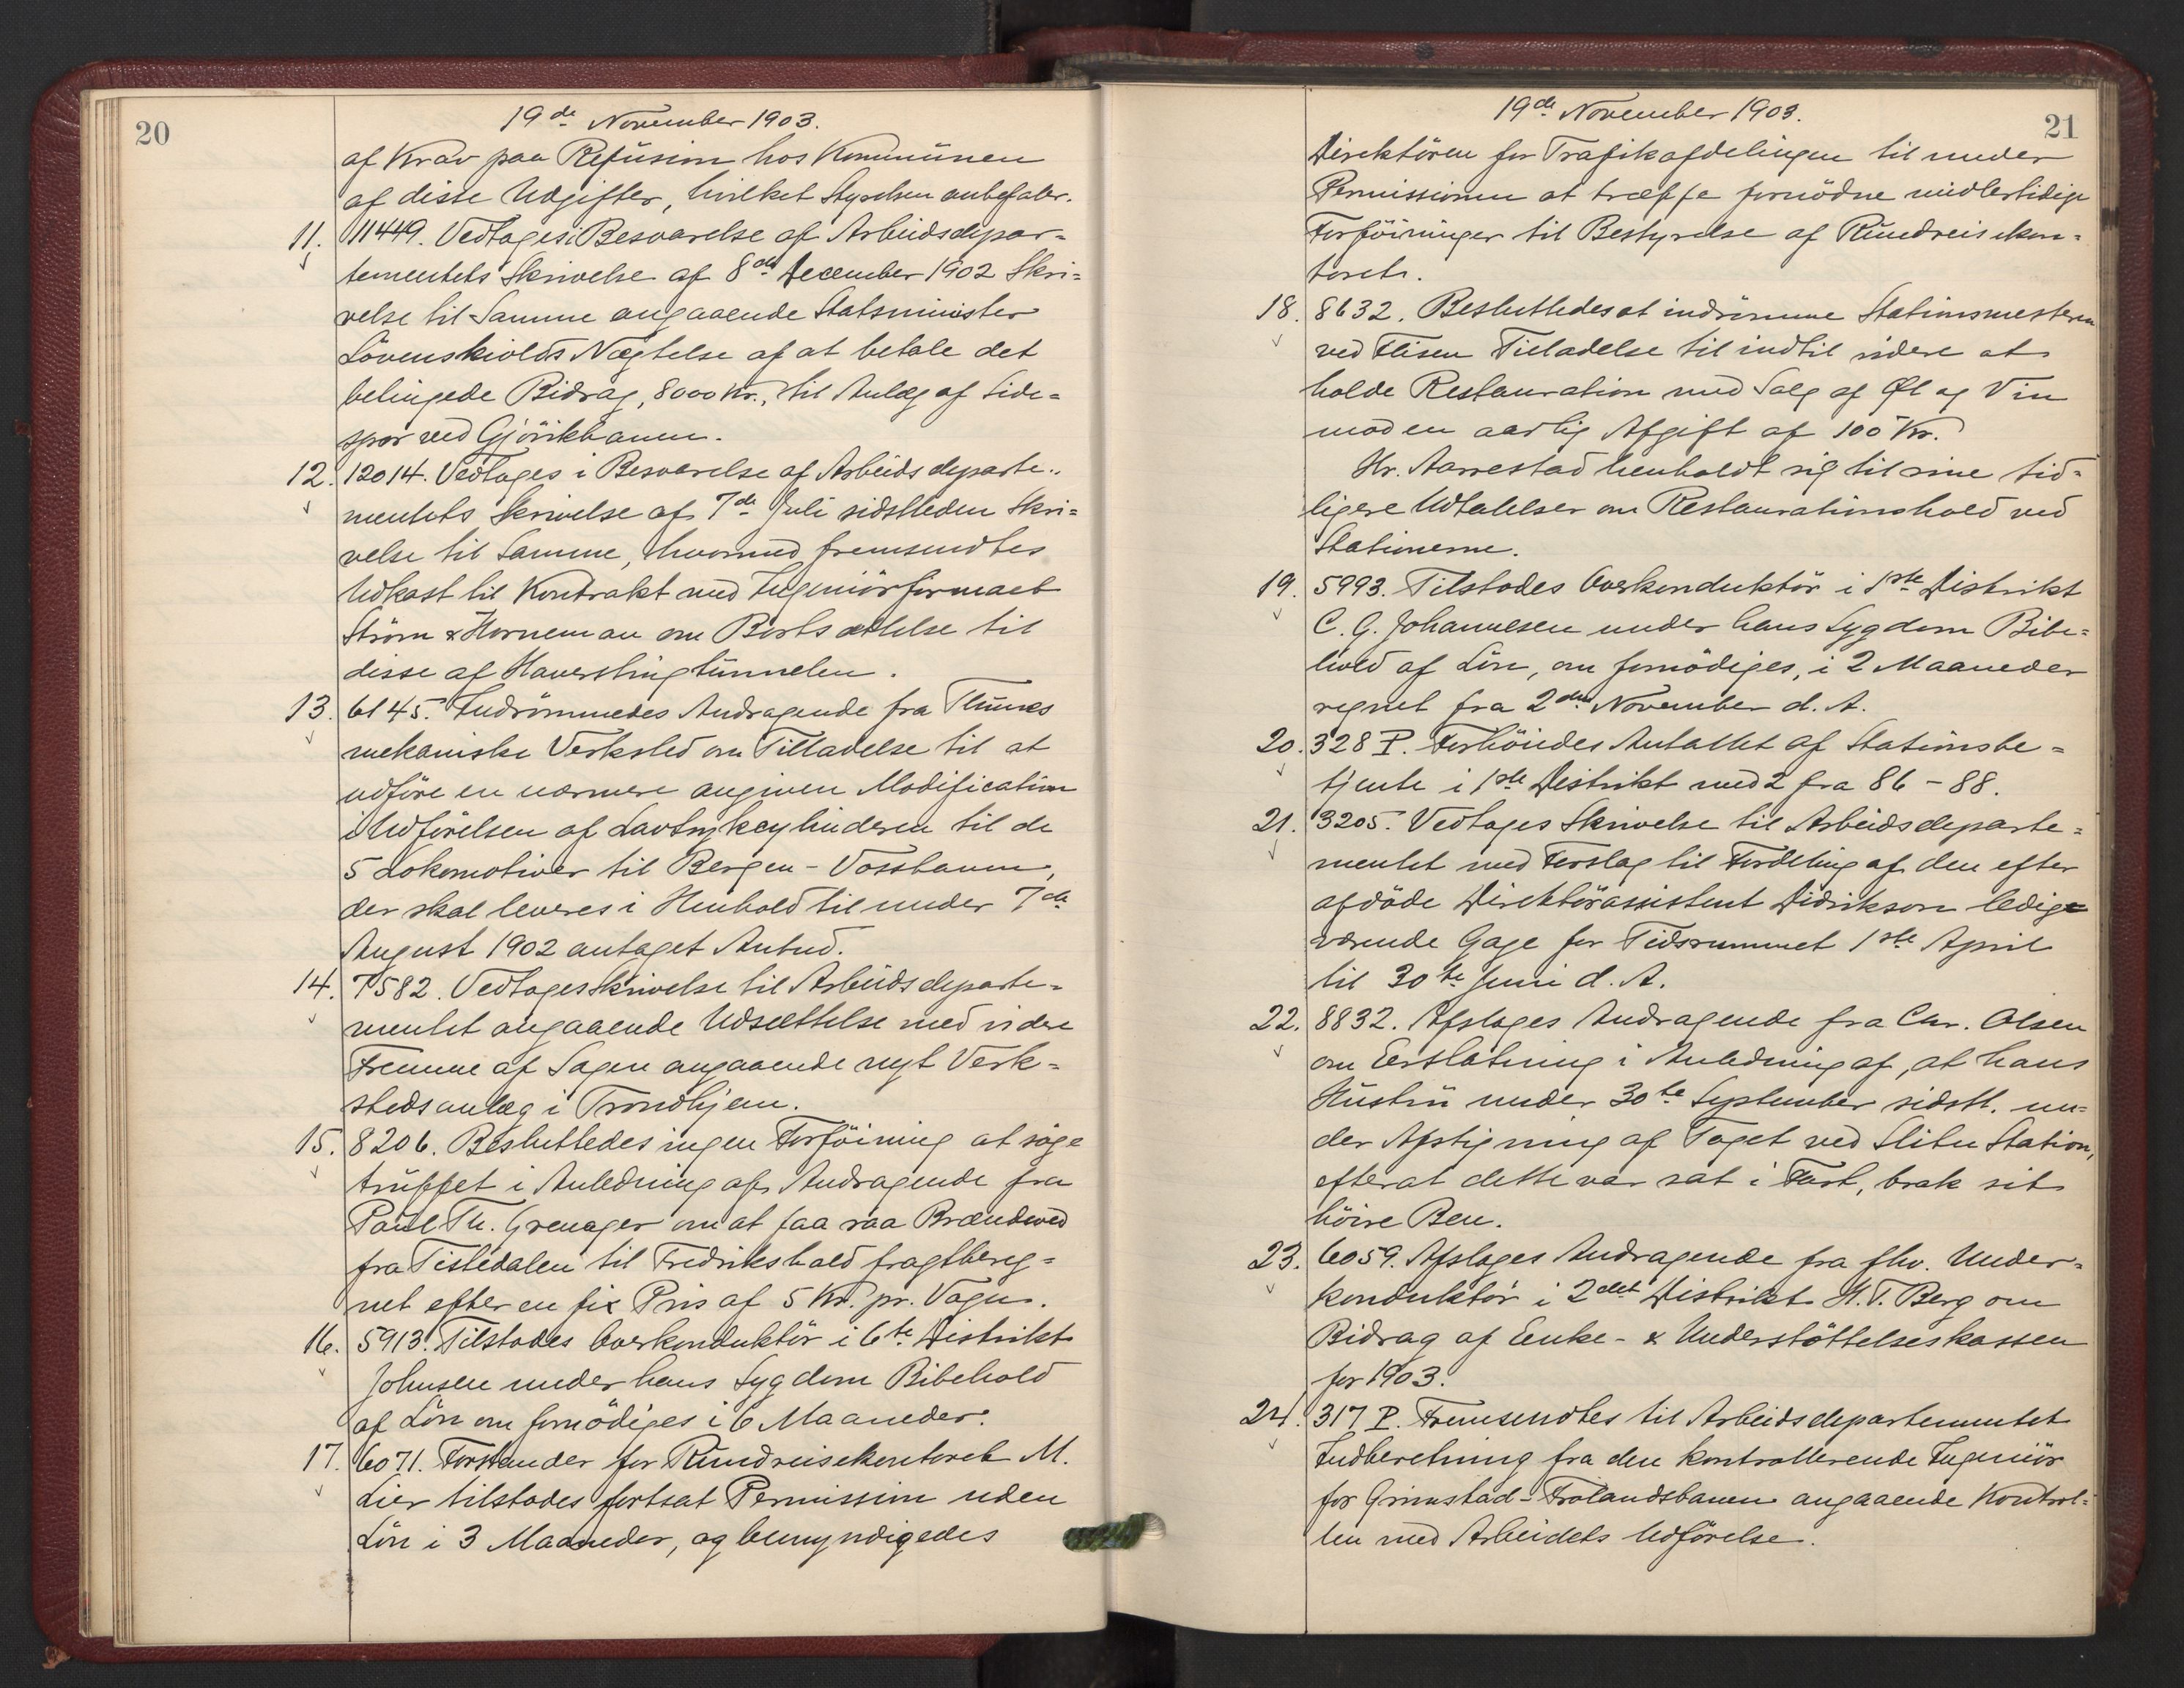 20
19de November 1903.
af Krav paa Refusion hos Kommunen
af disse Udgifter, hvilket Styrelsen anbefaler.
11. 11449. Vedtoges i Besvarelse af Arbeidsdepar-
tementets Skrivelse af 8de December 1902 Skri-
velse til Samme angaaende Statsminister
Lövenskiolds Nægtelse af at betale det
betingede Bidrag, 8000 Kr., til Anlæg af Side-
spor ved Gjövikbanen.
12. 12014. Vedtoges i Besvarelse af Arbeidsdeparte-
mentets Skrivelse af 7de Juli sidstleden Skri-
velse til Samme, hvormed fremsendtes
Udkast til Kontrakt med Ingeniörfirmaet
Ström & Horneman om Bortsættelse til
disse af Haverstingtunnelen.
13. 6145. Indrömmedes Andragende fra Thunes
mekaniske Verksted om Tilladelse til at
udföre en nærmere angiven Modification
i Udförelsen af Lavtrykcylinderen til de
5 Lokomotiver til Bergen-Vossbanen,
der skal leveres i Henhold til under 7de
August 1902 antaget Anbud.
14. 7582. Vedtoges Skrivelse til Arbeidsdeparte-
mentet angaaende Udsættelse med videre
Fremme af Sagen angaaende nyt Verk-
stedsanlæg i Trondhjem.
15. 8206. Besluttedes ingen Forföining at söge
truffet i Anledning af Andragende fra
Paul Th. Grenager om at faa raa Brændeved
fra Tistedalen til Fredrikshald fragtbereg-
net efter en fix Pris af 5 Kr. pr. Vogn.
16. 5913. Tilstodes Overkonduktör i 6te Distrikt
Johnsen under hans Sygdom Bibehold
af Lön om fornödiges i 6 Maaneder.
17. 6071. Forstander for Rundreisekontoret M.
Lier tilstodes fortsat Permission uden
Lön i 3 Maaneder, og bemyndigedes
21
19de November 1903.
Direktören for Trafikafdelingen til under
Permissionen at træffe fornödne midlertidige
Forföininger til Bestyrelse af Rundreisekon-
toret.
18. 8632. Besluttedes at indrömme Stationsmesteren
ved Flisen Tilladelse til indtil videre at
holde Restauration med Salg af Øl og Vin
mod en aarlig Afgift af 100 Kr.
Hr. Aarrestad henholdt sig til sine tid-
ligere Udtalelser om Restaurationshold ved
Stationerne.
19. 5993. Tilstodes Overkonduktör i 1ste Distrikt
C. G. Johannesen under hans Sygdom Bibe-
hold af Lön, om fornödiges, i 2 Maaneder
regnet fra 2den November d. A.
20. 328 P. Forhöiedes Antallet af Stationsbe-
tjente i 1ste Distrikt med 2 fra 86 - 88.
21. 3205. Vedtoges Skrivelse til Arbeidsdeparte-
mentet med Forslag til Fordeling af den efter
afdöde Direktörassistent Didrikson ledig
værende Gage for Tidsrummet 1ste April
til 30te Juni d. A.
22. 8832. Afsloges Andragende fra Chr. Olsen
om Erstatning i Anledning af, at hans
Hustru under 30te September sidstl. un-
der Afstigning af Toget ved Slitu Station,
efterat dette var sat i Fart, brak sit
höire Ben.
23. 6059. Afsloges Andragende fra fhv. Under-
konduktör i 2det Distrikt H. T. Berg om
Bidrag af Enke- & Understöttelseskassen
for 1903.
24. 317 P. Fremsendtes til Arbeidsdepartementet
Indberetning fra den kontrollerende Ingeniör
for Grimstad-Frolandsbanen angaaende Kontrol-
len med Arbeidets Udförelse.